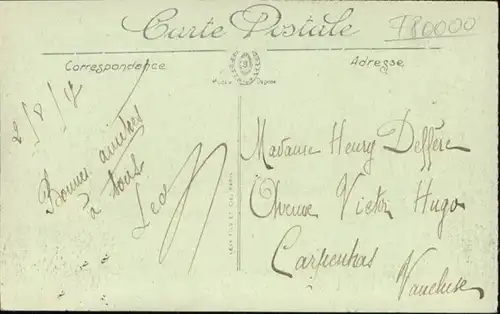 Carte Postale
T80000
Correspondance
Adresse
2/8/17
Bonnes amitiés
à tous
Leo
Madame Henry Deffère
Avenue Victor Hugo
Carpentras
Vaucluse